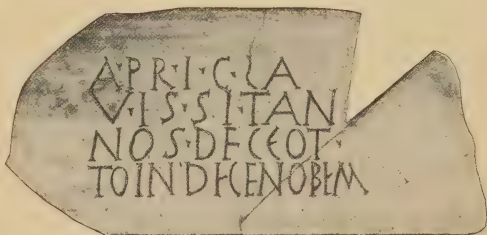 A·PRI·C·LA
VIS·SI·TAN
NOS·DECEOT·
TOINDECENOBEM